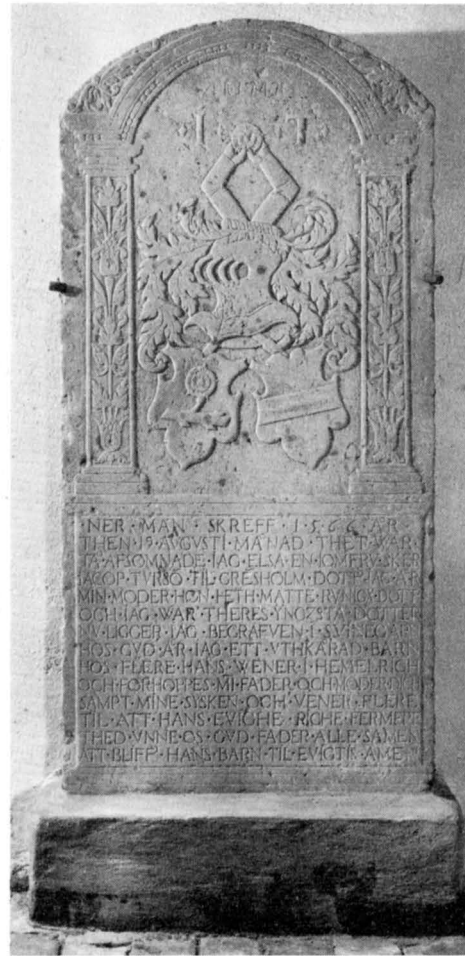 I T
NER · MAN · SKREFF · 1 · 5 6 6 · ÅR
THEN · 19 · AVGVSTI · MÅNAD · THET · WAR
TA · AFSOMNADE · IAG · ELSA · EN · IOMFRV · SKER
IACOP · TVRSO · TIL · GRESHOLM · DOTT · IAG · ÄR
MIN · MODER · HON · HETH · MATTE ·
OCH · IAG · WAR · THERES · YNGZSTA · DOTTER
NV · LIGGER · IAG · BEGRAFVEN · I · SVINEGARN
HOS · GVD · ÄR · IAG · ETT · VTHKÅRAD · BARN
HOS · FLERE · HANS · WENER · I · HEMELRICH
OCH · FÖRHOPPES · MI · FADER · OCH · MODER ·
SAMPT · MINE · SYSKEN · OCH · VENER · FLERE
TIL · ATT · HANS · EVIGHE · RICHE ·
THED · VNNE · OS · GVD · FADER · ALLE · SAMEN
ATT · BLIFF · HANS · BARN · TIL · EVIGTIK · AMEN